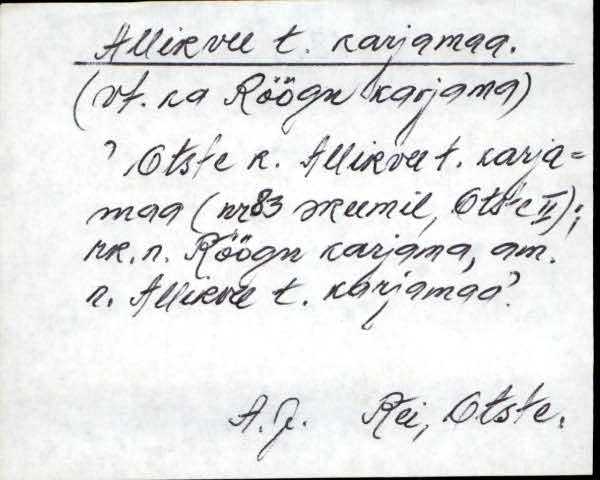 Allikvee t. karjamaa.
(vt. ka Röögu karjama)
' Otste k. Allikvee t. karja=
maa (nr 83 skeemil, Otste II);
rk. n. Röögu karjama, am.
n. Allikvee t. karjamaa'.
A. J. Rei, Otste.